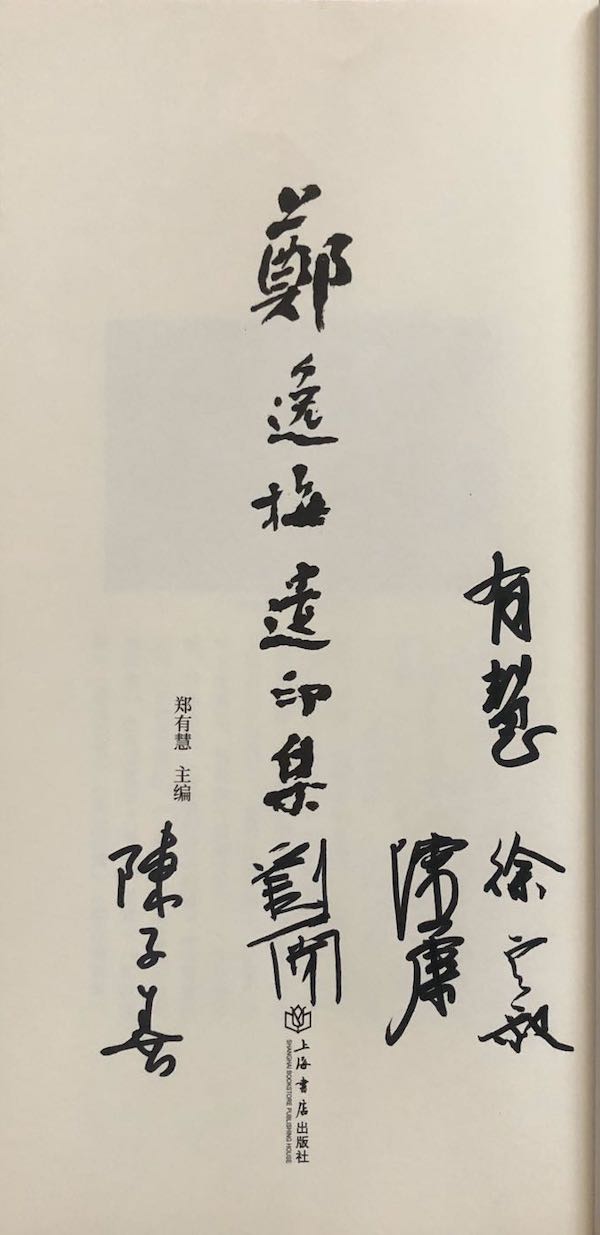 有慧
徐
陳康
鄭逸梅遺印集
劉開
上海書店出版社
SHANGHAI BOOKSTORE PUBLISHING HOUSE
郑有慧 主编
陳子善